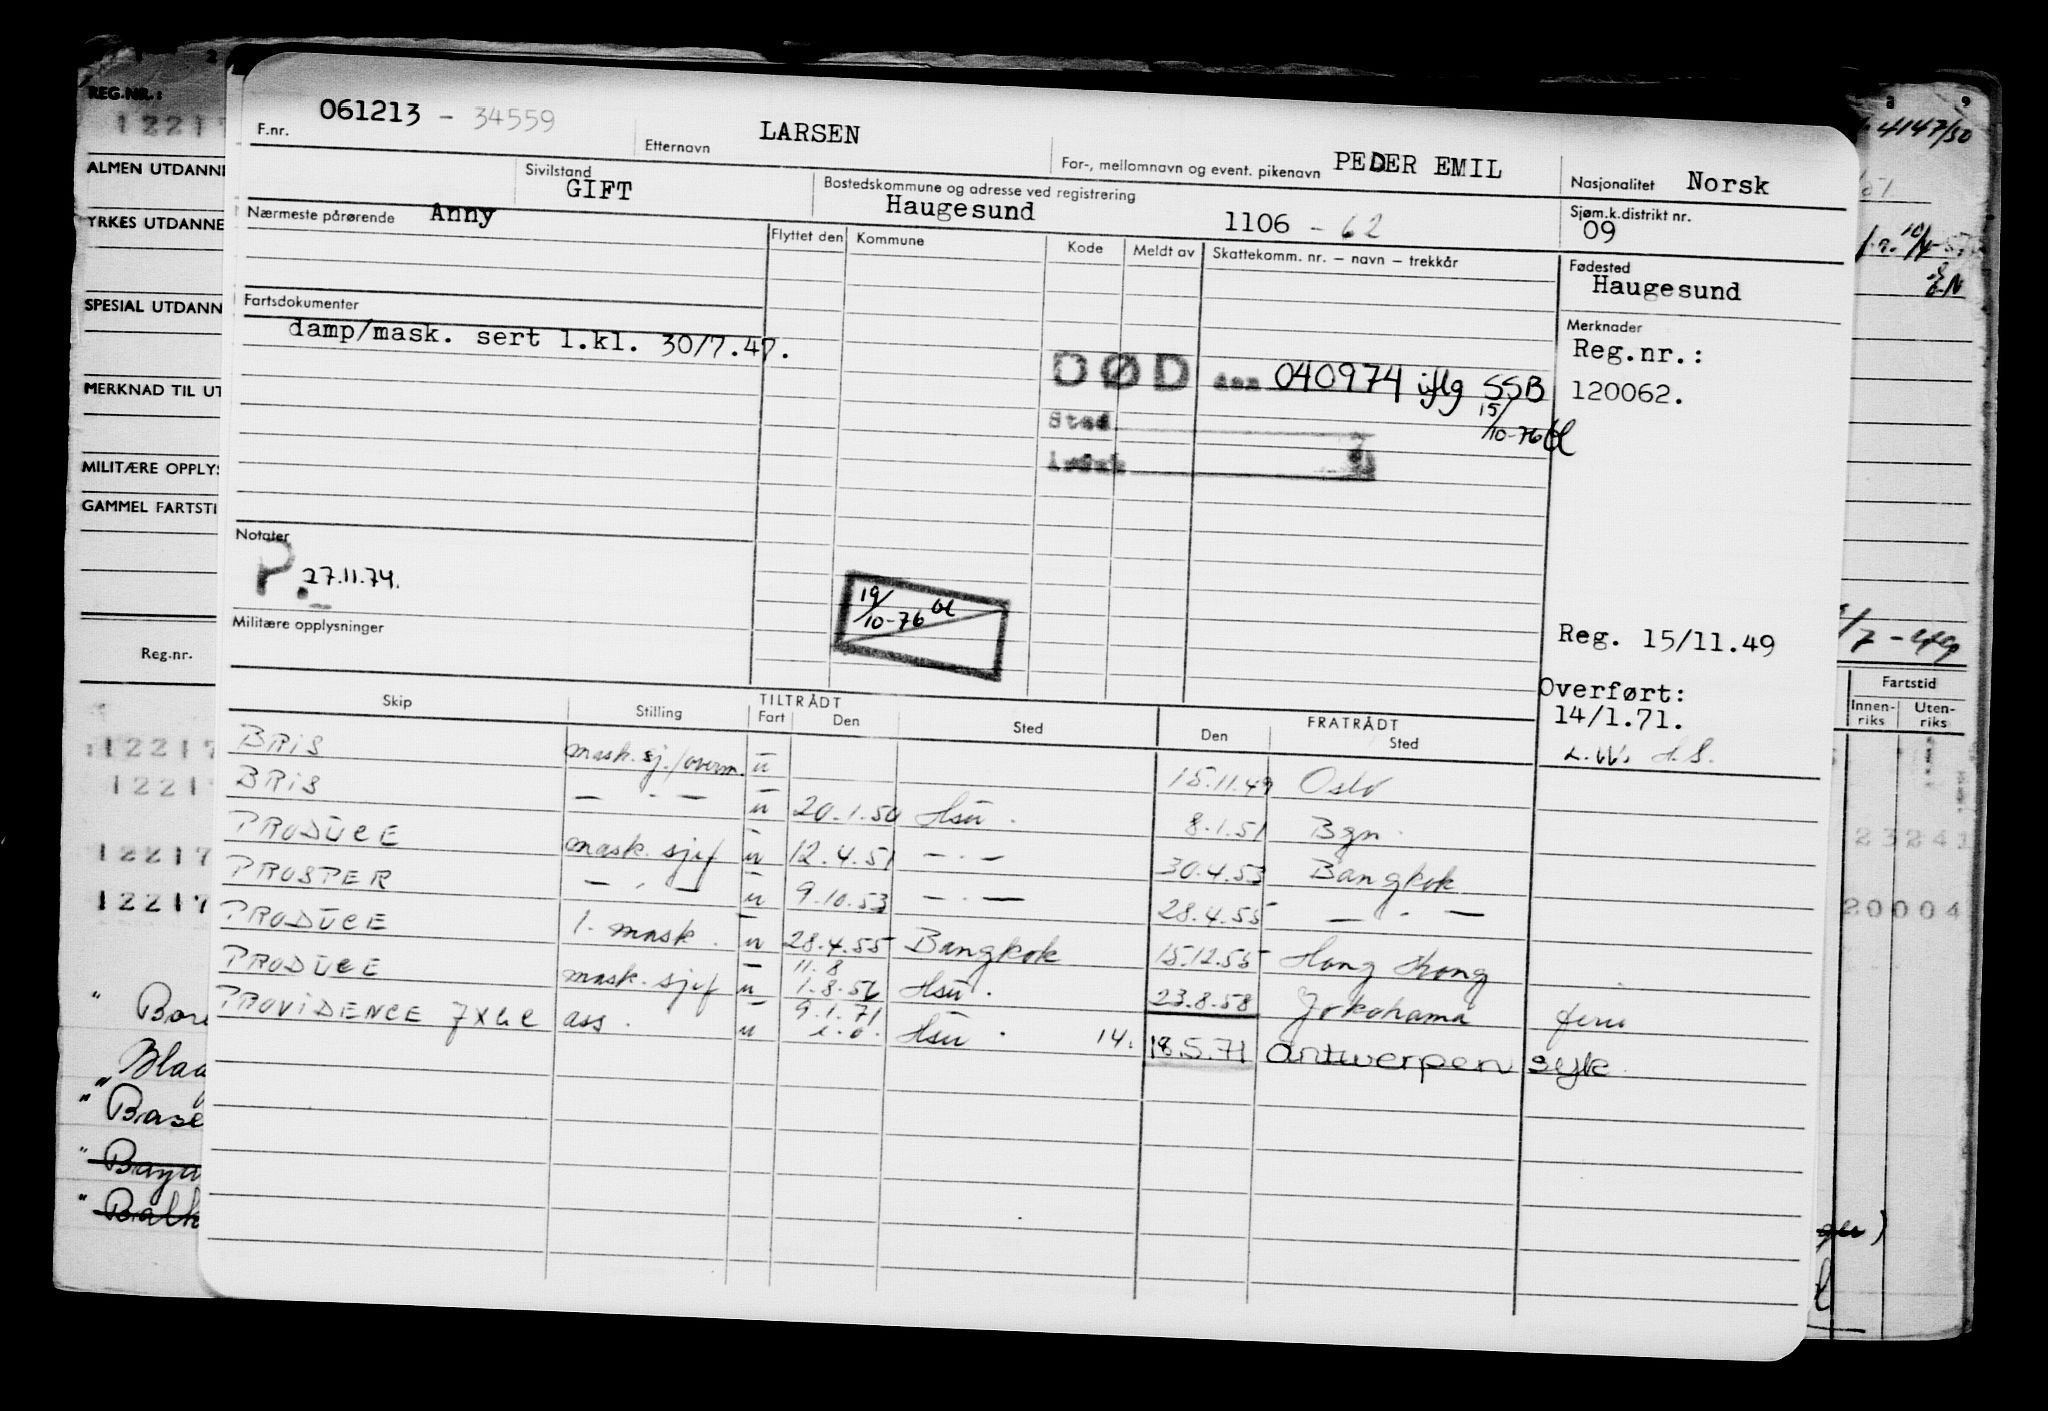 REG.NR.:
ALMEN UTDANNE
YRKES UTDANNE
SPESIAL UTDANN
MERKNAD TIL UT
MILITÆRE OPPLYS
GAMMEL FARTSTI
Reg.nr.
12217
12217
12217
12217
12217
" Bore
" Blaa
" Base
" Balk
F.nr. 061213 - 34559
Etternavn LARSEN
For-, mellomnavn og event. pikenavn PEDER EMIL
Nasjonalitet Norsk
Sivilstand GIFT
Bostedskommune og adresse ved registrering
Haugesund 1106 - 62
Sjøm.k.distrikt nr. 09
Nærmeste pårørende Anny
Flyttet den Kommune Kode Meldt av Skattekomm. nr. – navn – trekkår
Fødested
Haugesund
Fartsdokumenter
damp/mask. sert 1.kl. 30/7.47.
Merknader
Reg.nr.:
120062.
DØD den 040974 iflg SSB
15/10-76
Sted
Notater
P. 27.11.74.
19/10-76
Militære opplysninger
Reg. 15/11.49
Overført:
14/1.71.
Skip Stilling TILTRÅDT Fart Den Sted FRATRÅDT Den Sted
BRIS mask.sj./overm. u 15.11.49 Oslo
BRIS — · — u 20.1.50 Hsu. 8.1.51 Bgn.
PRODUCE mask. sjef u 12.4.51 — · — 30.4.53 Bangkok
PROSPER — · — u 9.10.53 — · — 28.4.55 — · —
PRODUCE 1. mask. u 28.4.55 Bangkok 15.12.55 Hong Kong
PRODUCE mask. sjef u 11.8 1.8.56 Hsu. 23.8.58 Yokohama ferie
PROVIDENCE 7XGC ass. u 9.1.71 Hsu. 14. 18.5.71 Antwerpen syk
4147/50
Fartstid
Innen-riks Uten-riks
23241
20004